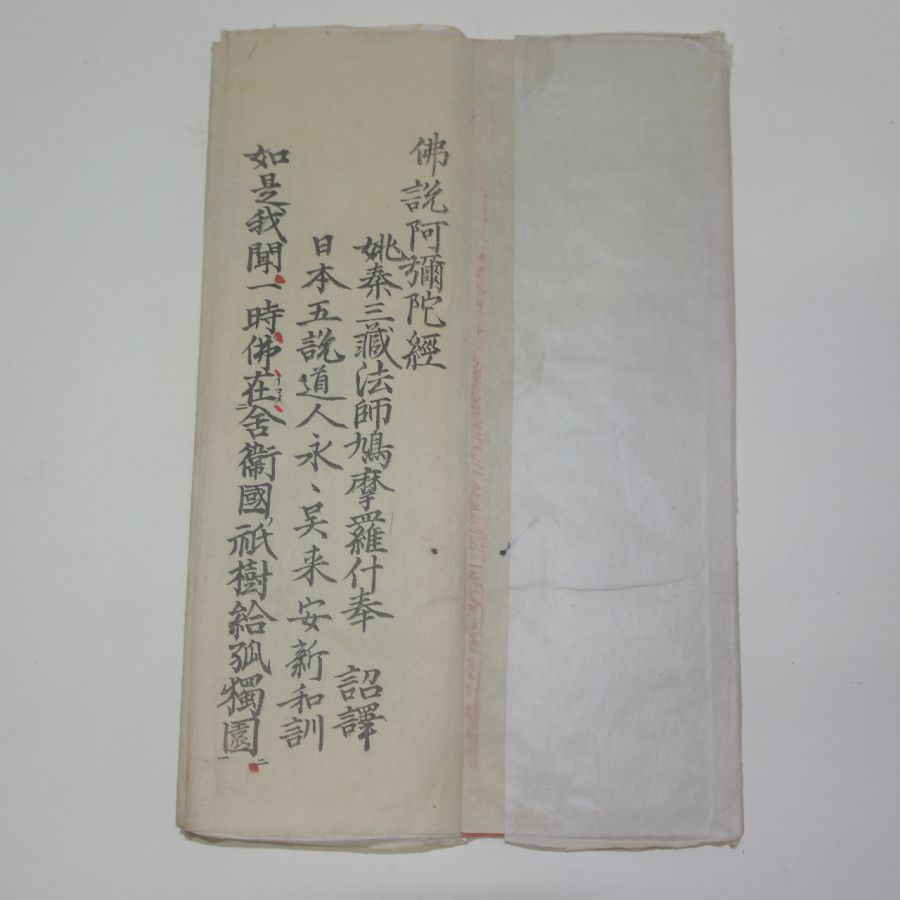 佛説阿彌陀經
姚秦三藏法師鳩摩羅什奉 詔譯
日本五説道人永、吴来安新和訓
如是我聞一時佛在舍衞國祇樹給孤獨園